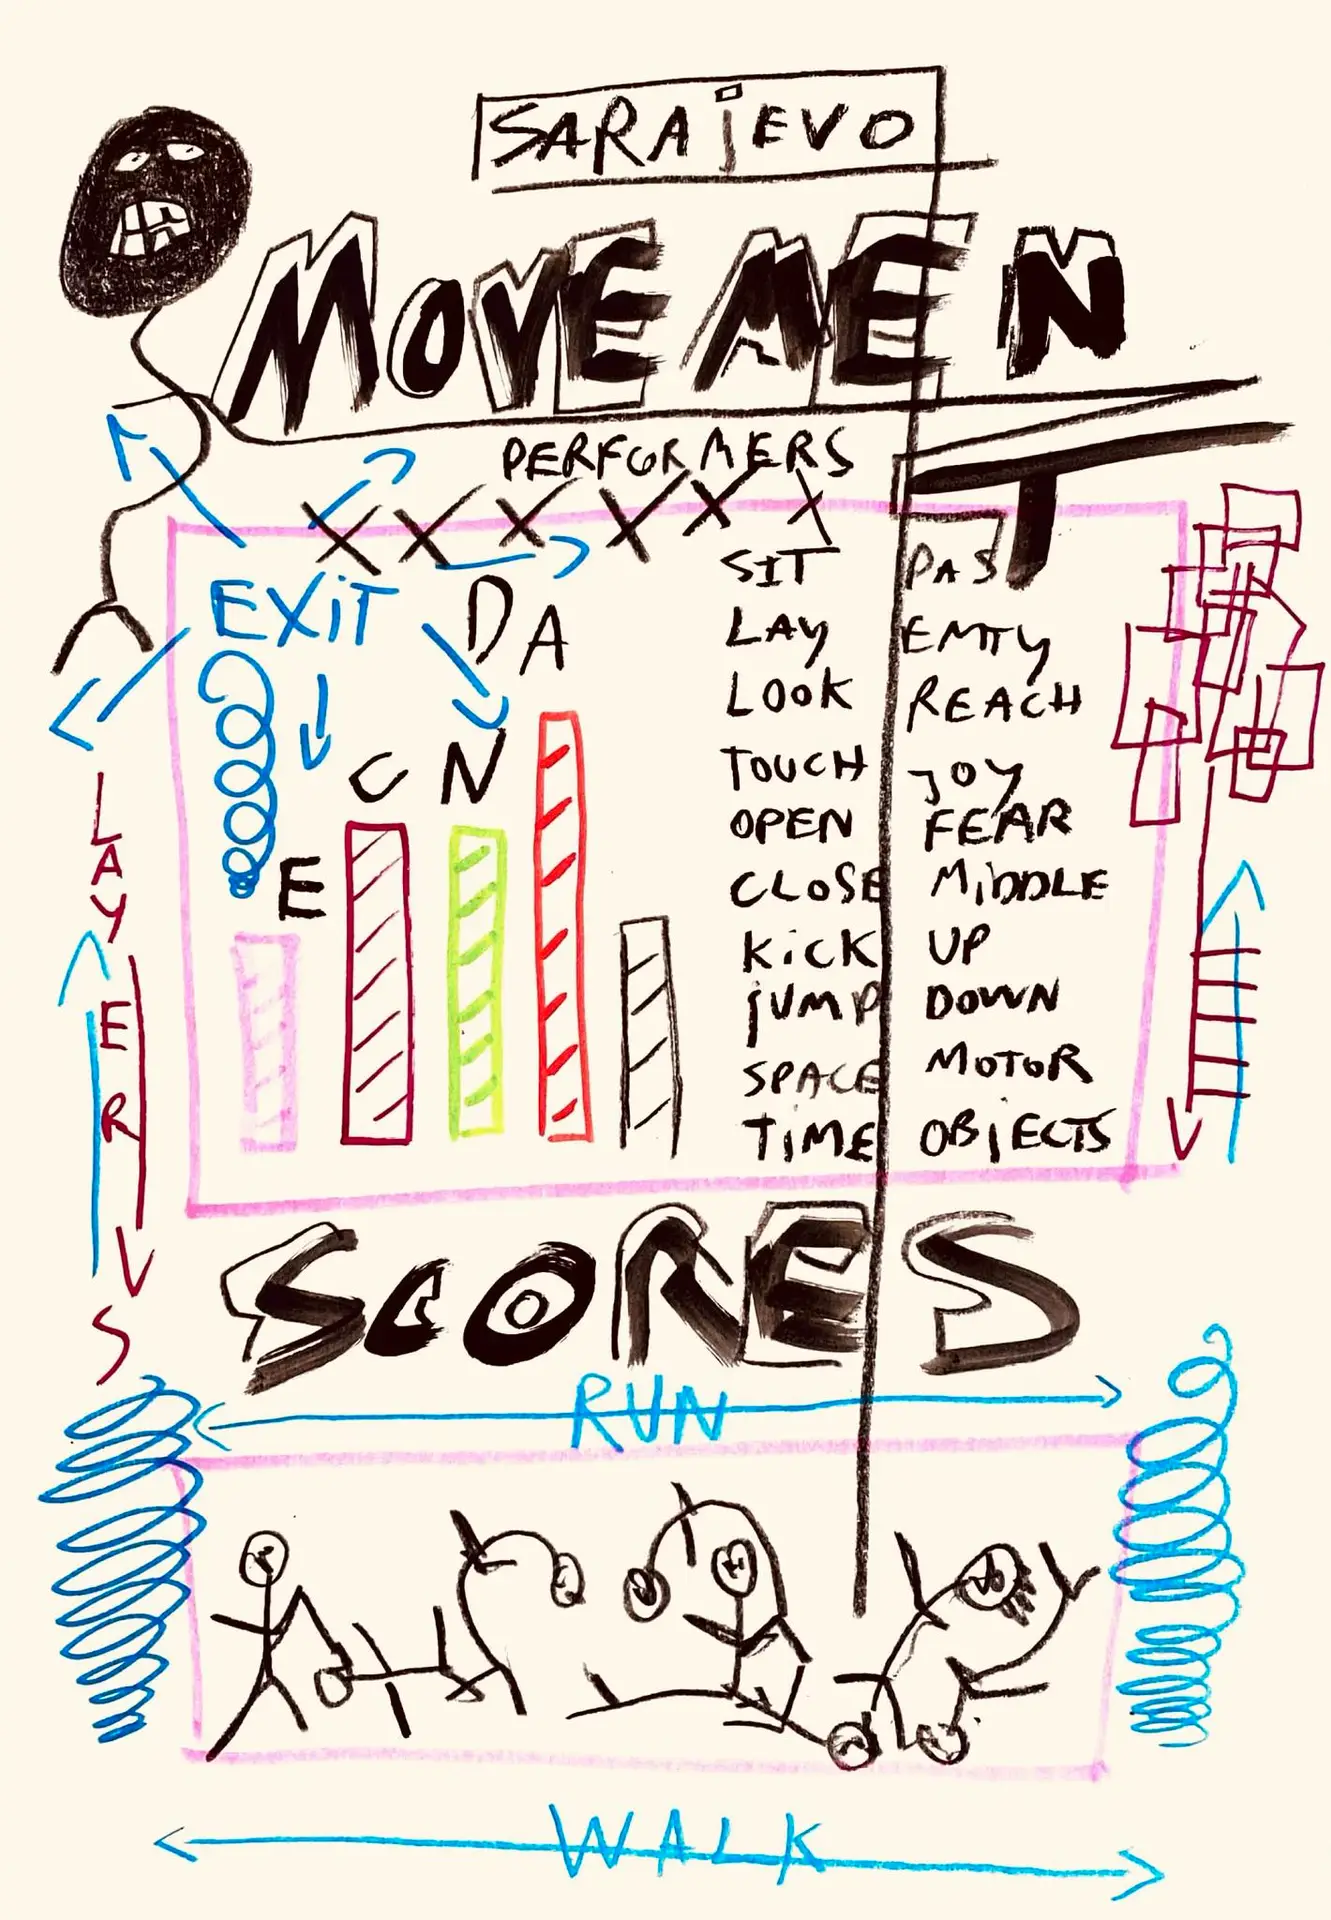 SARAjEVO
MOVEMENT
PERFORMERS
X X X X X X
EXiT
DANCE
SIT
LAY
LOOK
TOUCH
OPEN
CLOSE
KiCK
jUMP
SPACE
TiME
PAS
EMTY
REACH
JOY
FEAR
MiDDLE
UP
DOWN
MOTOR
OBjECTS
LAYERS
SCORES
RUN
WALK